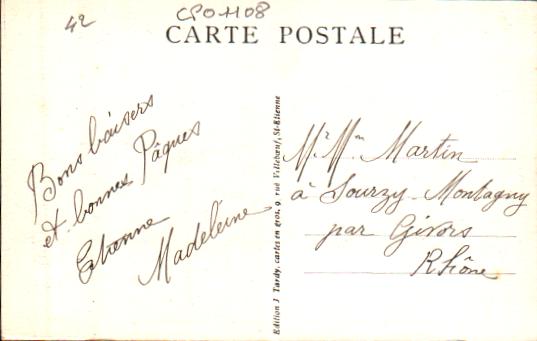 42
CPO1108
CARTE POSTALE
Bons baisers
et bonnes Pâques
Etienne
Madeleine
Edition J Tardy, cartes en gros, 9, rue Villebœuf, St-Etienne
Mr Mme Martin
à Sourzy-Montagny
par Givors
Rhône